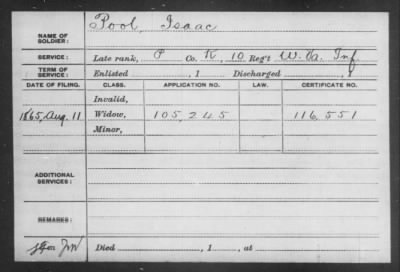 NAME OF SOLDIER: Pool, Isaac
SERVICE: Late rank, P Co. K, 10 Reg't W. Va. Inf
TERM OF SERVICE: Enlisted , 1 Discharged , 1
DATE OF FILING. CLASS. APPLICATION NO. LAW. CERTIFICATE NO.
Invalid,
1865, Aug. 11 Widow, 105,245 116,551
Minor,
ADDITIONAL SERVICES:
REMARKS:
Died , 1 , at